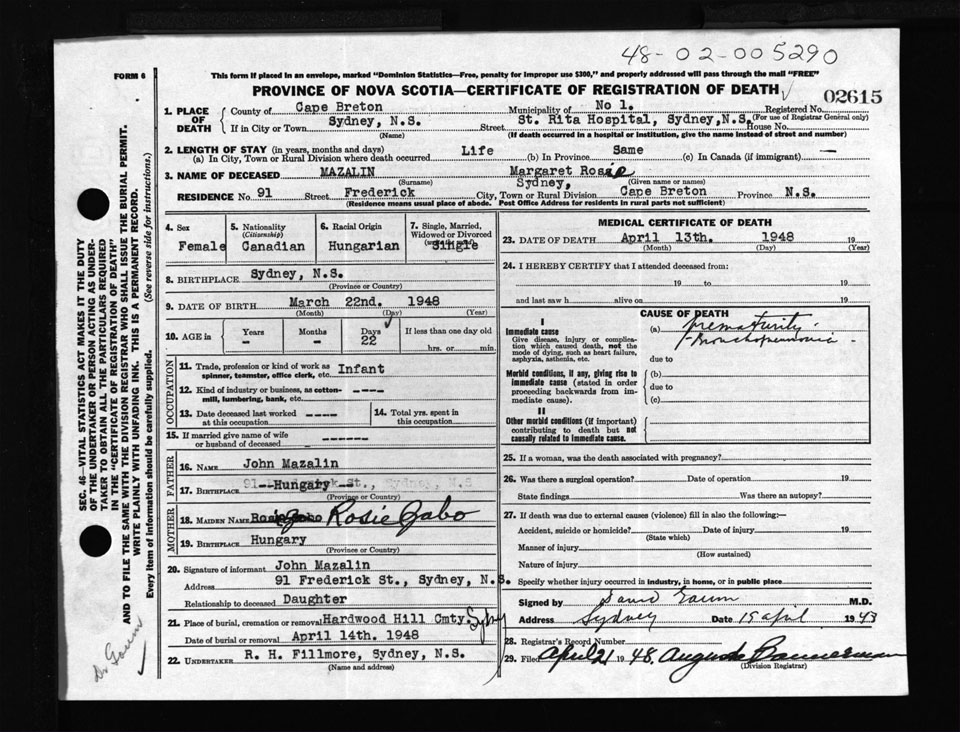 48-02-005290
FORM 6
This form if placed in an envelope, marked "Dominion Statistics—Free, penalty for improper use $300," and properly addressed will pass through the mail "FREE"
PROVINCE OF NOVA SCOTIA—CERTIFICATE OF REGISTRATION OF DEATH
02615
1. PLACE OF DEATH
County of Cape Breton Municipality of No 1. Registered No.
(For use of Registrar General only)
If in City or Town Sydney, N.S. Street St. Rita Hospital, Sydney, N.S. House No.
(Name) (If death occurred in a hospital or institution, give the name instead of street and number)
2. LENGTH OF STAY (in years, months and days)
(a) In City, Town or Rural Division where death occurred Life (b) In Province Same (c) In Canada (if immigrant) —
3. NAME OF DECEASED MAZALIN Margaret Rosie
(Surname) (Given name or names)
RESIDENCE No 91 Street Frederick City, Town or Rural Division Sydney, Cape Breton Province N.S.
(Residence means usual place of abode. Post Office Address for residents in rural parts not sufficient)
4. Sex Female
5. Nationality (Citizenship) Canadian
6. Racial Origin Hungarian
7. Single, Married, Widowed or Divorced Single
8. BIRTHPLACE Sydney, N.S.
(Province or Country)
9. DATE OF BIRTH March 22nd. 1948
(Month) (Day) (Year)
10. AGE in Years - Months - Days 22 If less than one day old hrs. or min.
OCCUPATION
11. Trade, profession or kind of work as spinner, teamster, office clerk, etc. Infant
12. Kind of industry or business, as cotton-mill, lumbering, bank, etc. ----
13. Date deceased last worked at this occupation -----
14. Total yrs. spent in this occupation
15. If married give name of wife or husband of deceased ------
FATHER
16. NAME John Mazalin
17. BIRTHPLACE --Hungary--
(Province or Country)
MOTHER
18. MAIDEN NAME Rosie Gabo Rosie Gabo
19. BIRTHPLACE Hungary
(Province or Country)
20. Signature of informant John Mazalin
Address 91 Frederick St., Sydney, N.S.
Relationship to deceased Daughter
21. Place of burial, cremation or removal Hardwood Hill Cmty. Sydney
Date of burial or removal April 14th. 1948
22. UNDERTAKER R. H. Fillmore, Sydney, N.S.
(Name and address)
MEDICAL CERTIFICATE OF DEATH
23. DATE OF DEATH April 13th. 1948 19
(Month) (Day) (Year)
24. I HEREBY CERTIFY that I attended deceased from:
19 to 19
and last saw h alive on 19
CAUSE OF DEATH
I
Immediate cause
Give disease, injury or complication which caused death, not the mode of dying, such as heart failure, asphyxia, asthenia, etc.
(a) prematurity.
- bronchopneumonia
due to
Morbid conditions, if any, giving rise to immediate cause (stated in order proceeding backwards from immediate cause).
(b)
due to
(c)
II
Other morbid conditions (if important) contributing to death but not causally related to immediate cause.
25. If a woman, was the death associated with pregnancy?
26. Was there a surgical operation? Date of operation 19
State findings Was there an autopsy?
27. If death was due to external causes (violence) fill in also the following:—
Accident, suicide or homicide? Date of injury 19
(State which)
Manner of injury
(How sustained)
Nature of injury
Specify whether injury occurred in industry, in home, or in public place
Signed by David Gaum M.D.
Address Sydney Date 15 april 1943
28. Registrar's Record Number
29. Filed April 21 1948. Auguste Bannerman
(Division Registrar)
SEC. 46—VITAL STATISTICS ACT MAKES IT THE DUTY
OF THE UNDERTAKER OR PERSON ACTING AS UNDER-
TAKER TO OBTAIN ALL THE PARTICULARS REQUIRED
IN THE "CERTIFICATE OF REGISTRATION OF DEATH"
AND TO FILE THE SAME WITH THE DIVISION REGISTRAR WHO SHALL ISSUE THE BURIAL PERMIT.
WRITE PLAINLY WITH UNFADING INK. THIS IS A PERMANENT RECORD.
Every item of information should be carefully supplied. (See reverse side for instructions.)
Dr Gaum